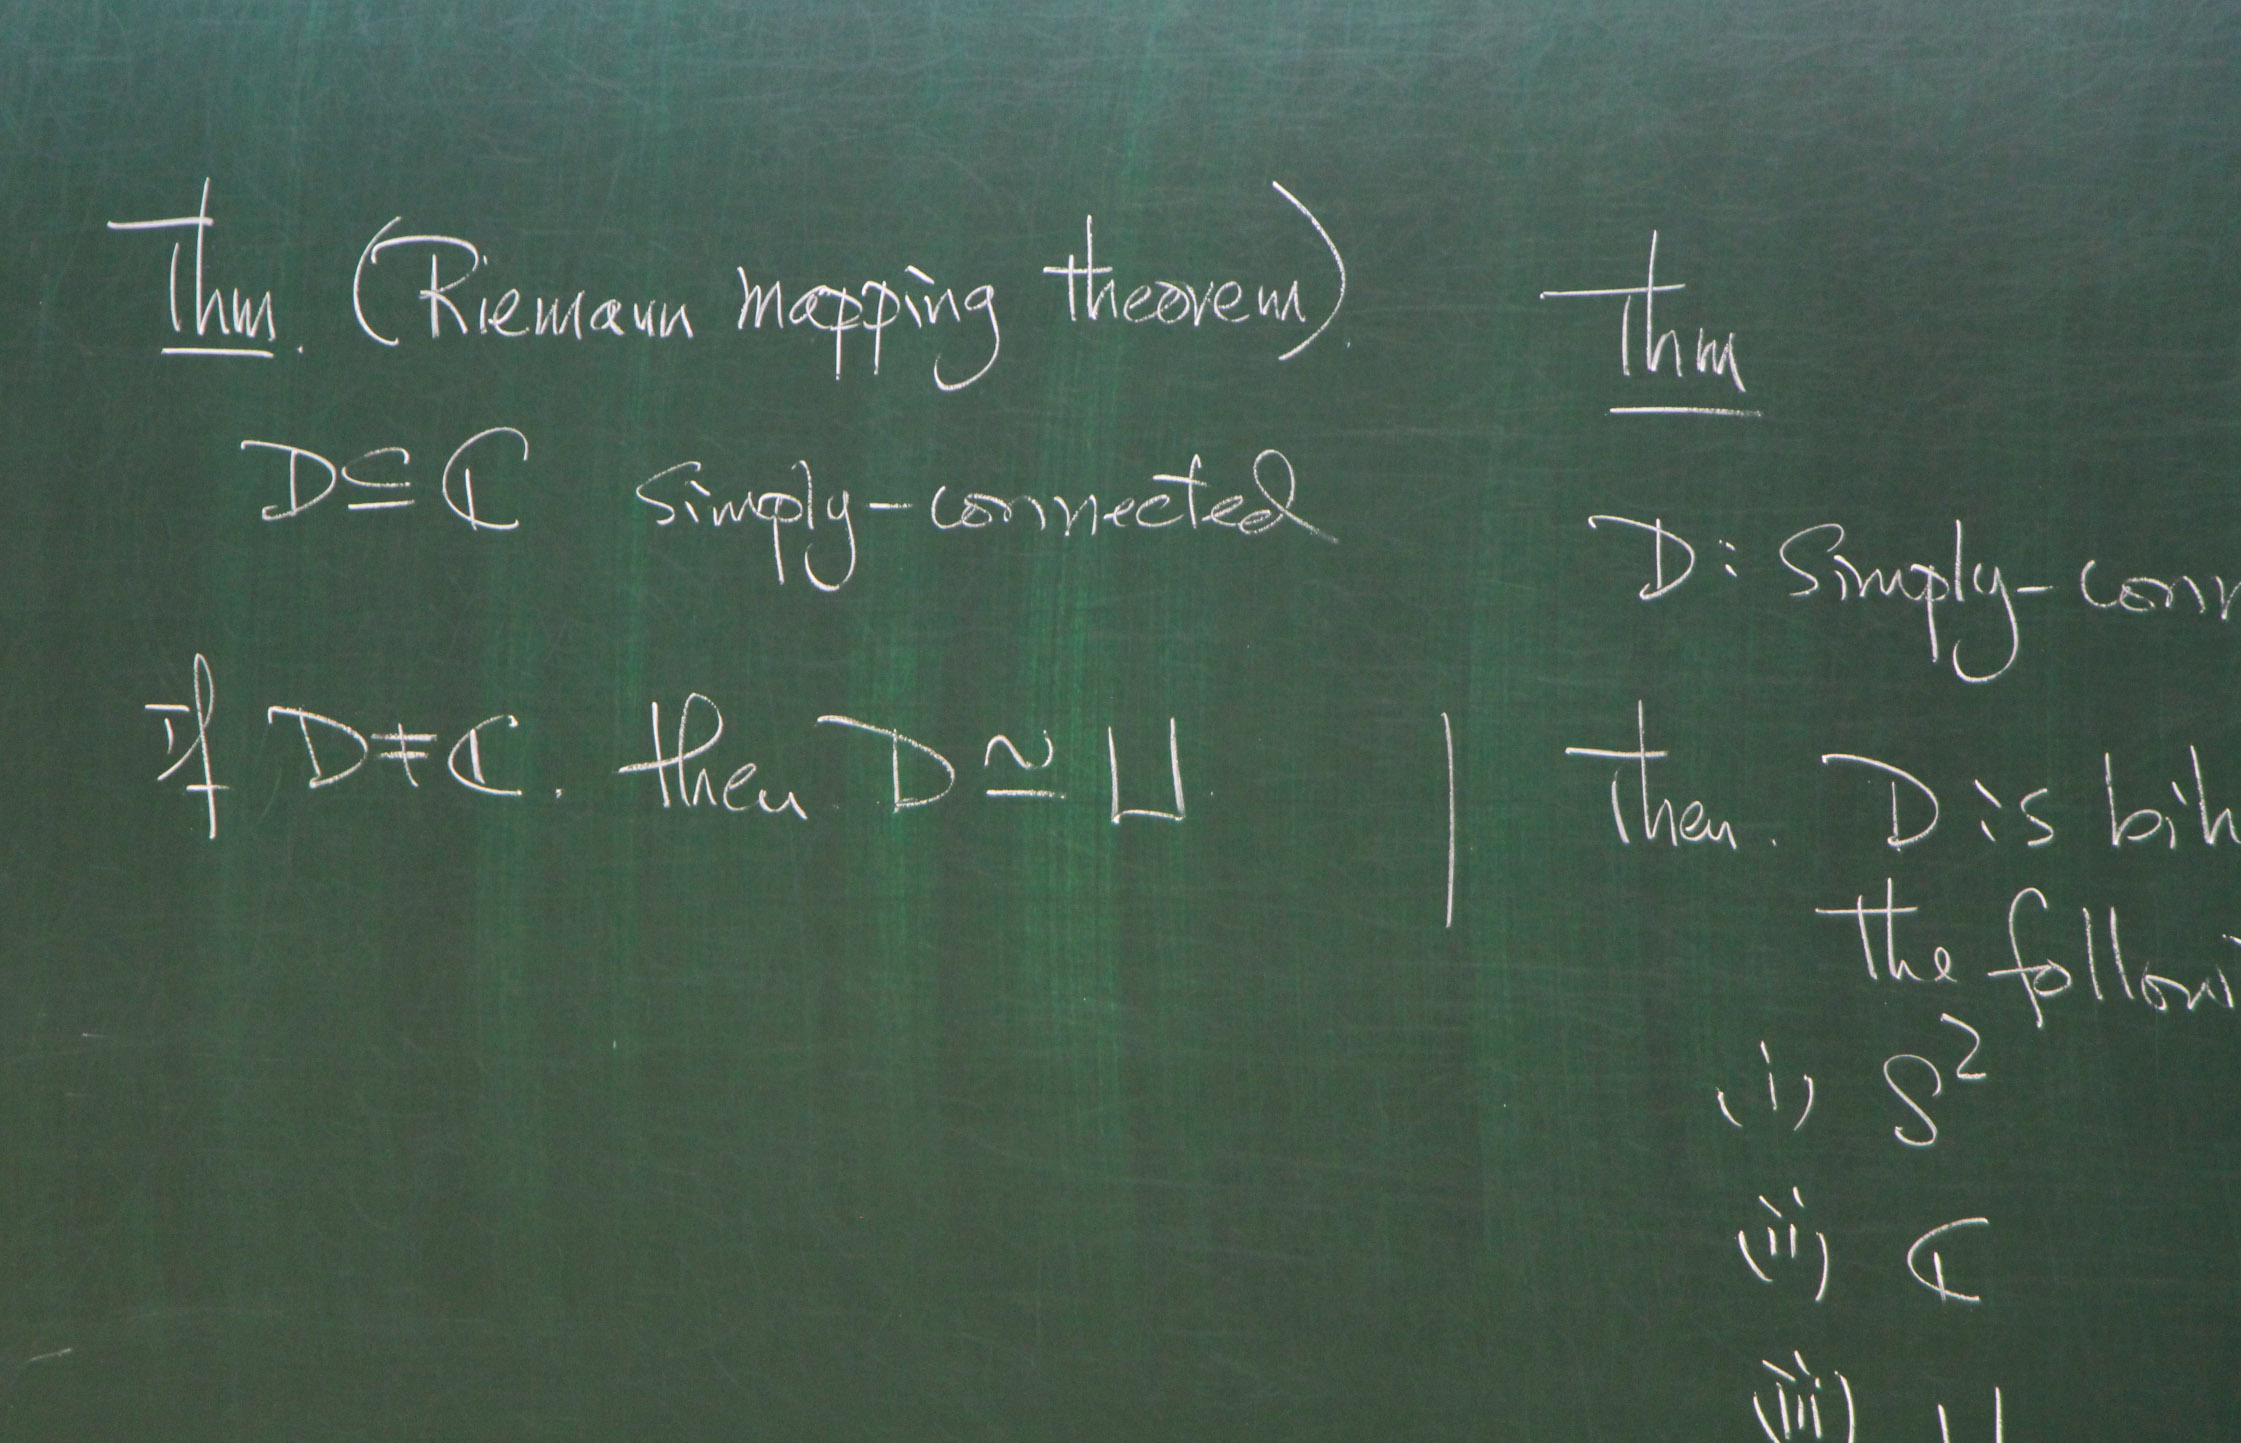 Thm. (Riemann mapping theorem).
D ⊆ ℂ simply-connected
if D ≠ ℂ. then D ≃ U.
Thm
D: Simply-conn
Then. D is bih
the followi
(i) S²
(ii) ℂ
(iii) U